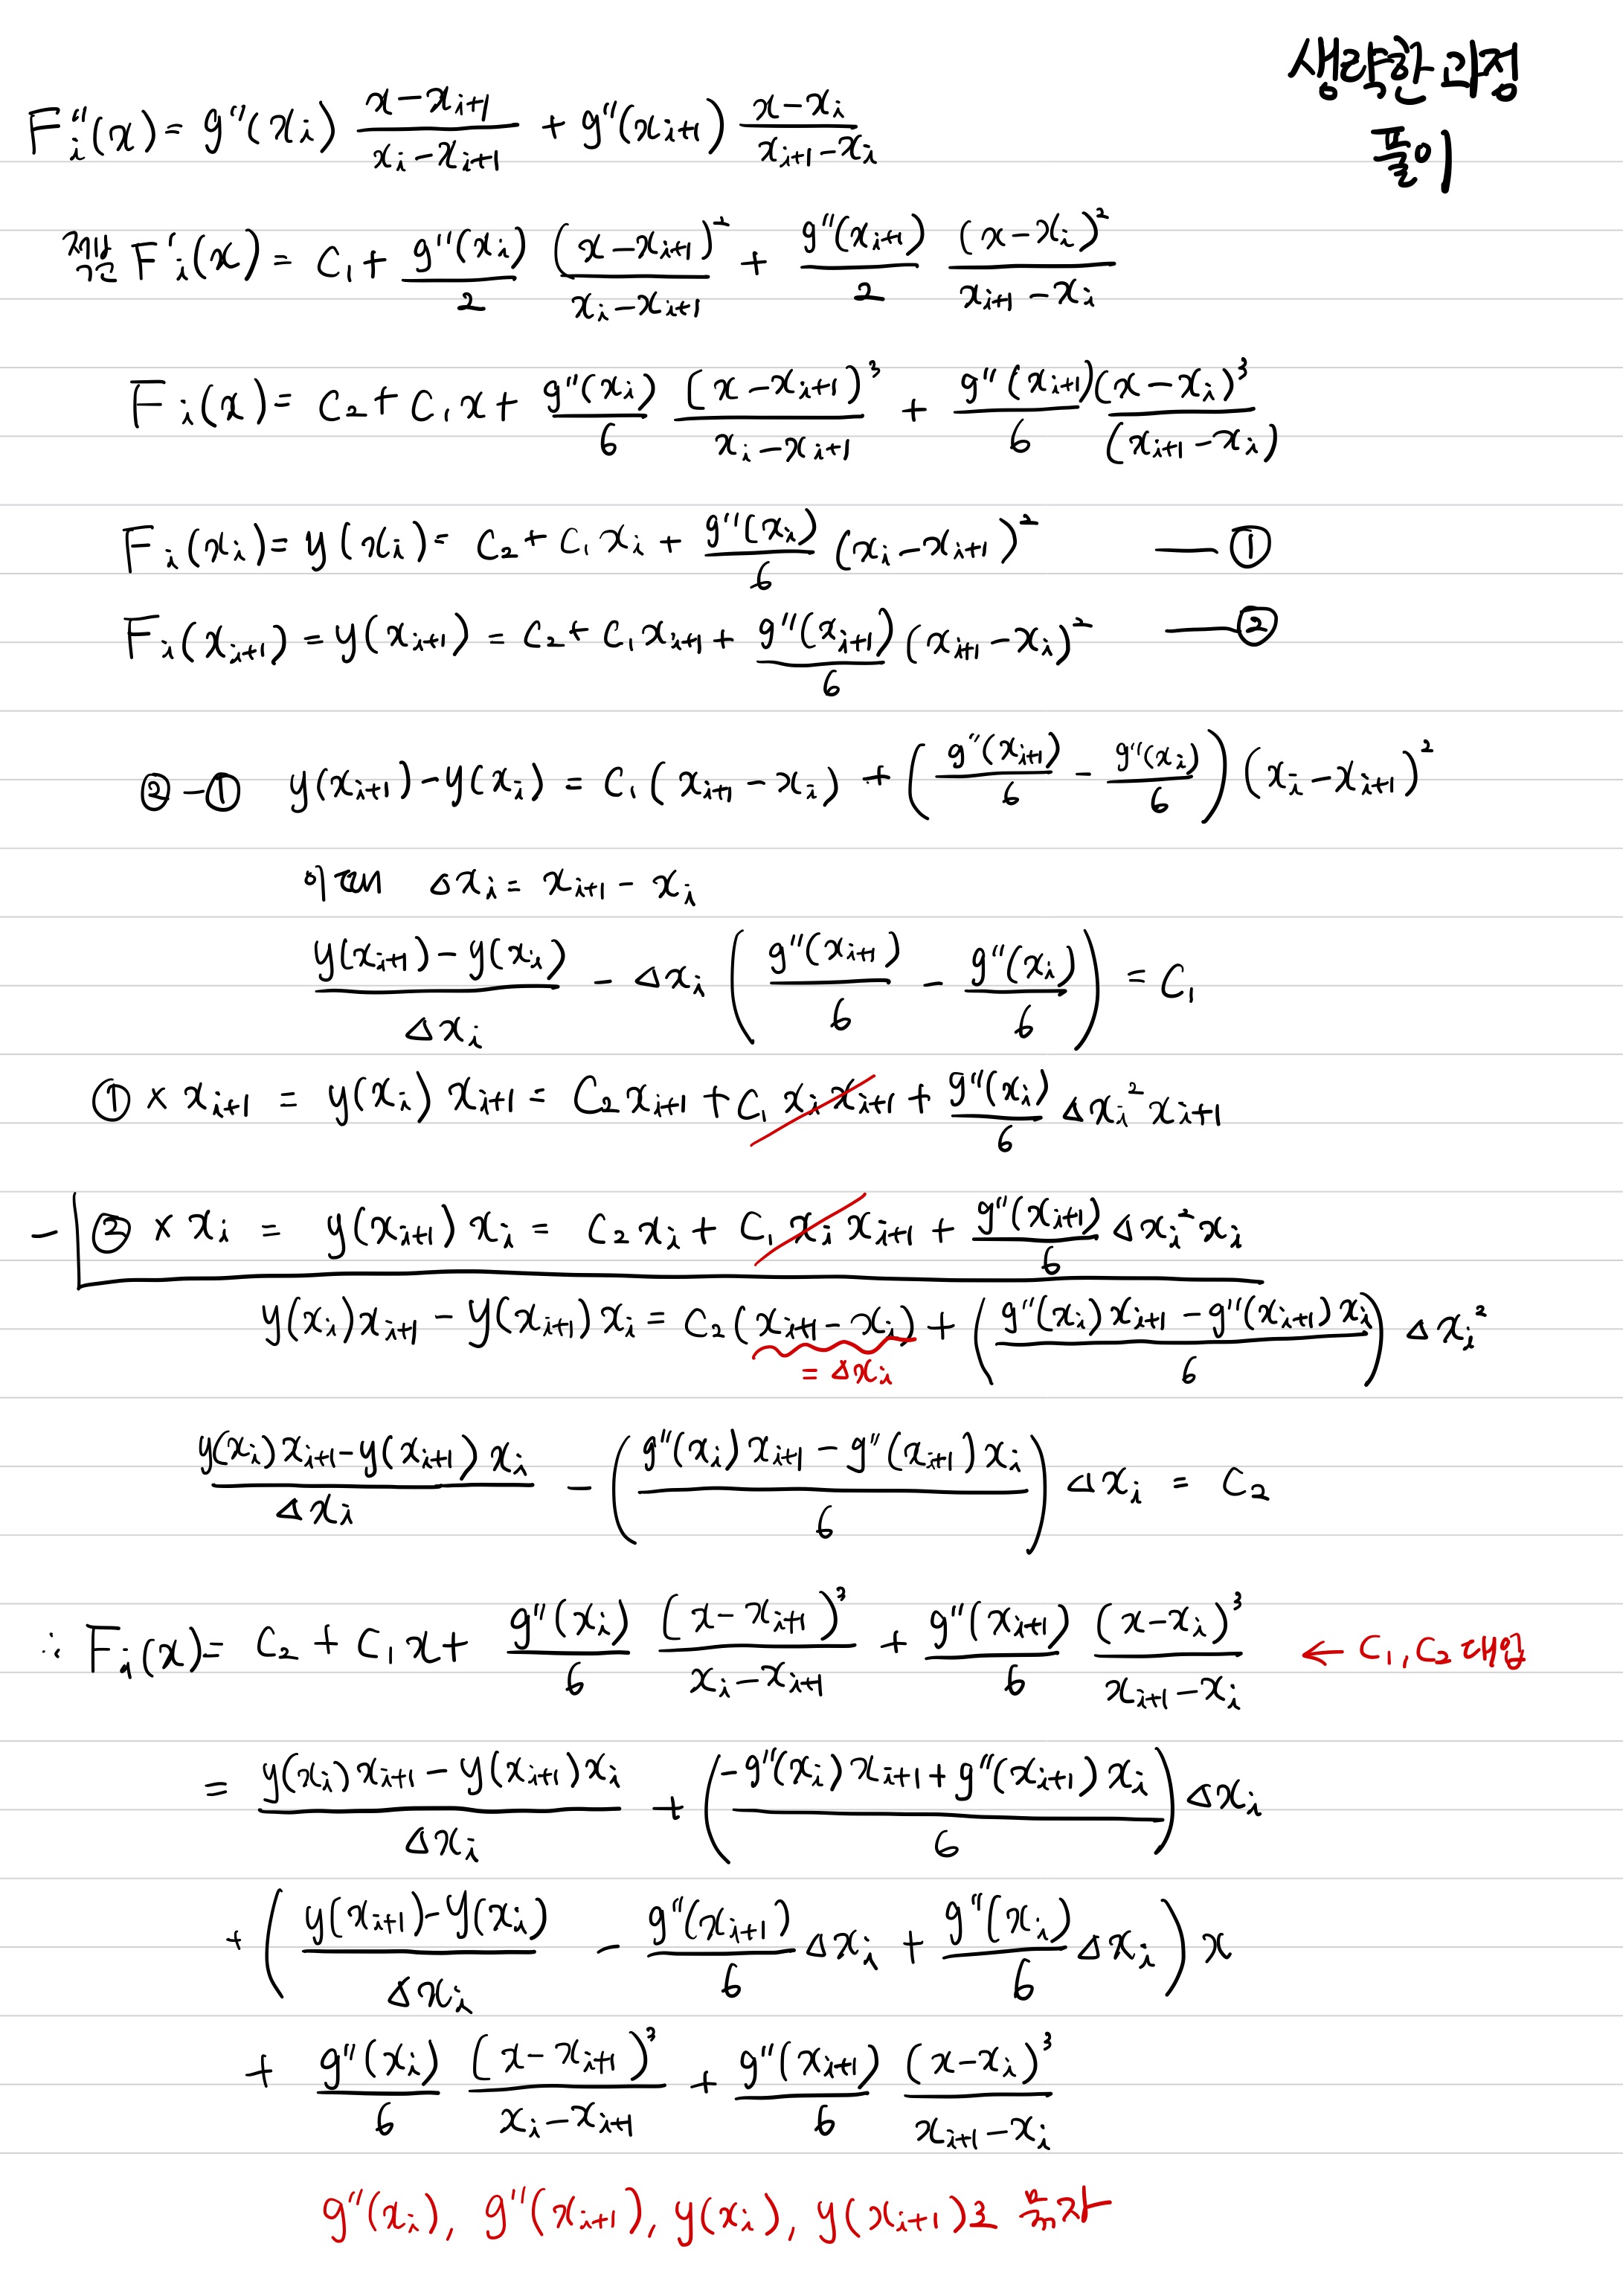 생략한 과정
풀이
F''ᵢ(x) = g''(xᵢ) (x-xᵢ₊₁)/(xᵢ-xᵢ₊₁) + g''(xᵢ₊₁) (x-xᵢ)/(xᵢ₊₁-xᵢ)
F'ᵢ(x) = C₁ + g''(xᵢ)/2 (x-xᵢ₊₁)²/(xᵢ-xᵢ₊₁) + g''(xᵢ₊₁)/2 (x-xᵢ)²/(xᵢ₊₁-xᵢ)
Fᵢ(x) = C₂ + C₁x + g''(xᵢ)/6 (x-xᵢ₊₁)³/(xᵢ-xᵢ₊₁) + g''(xᵢ₊₁)/6 (x-xᵢ)³/(xᵢ₊₁-xᵢ)
Fᵢ(xᵢ) = y(xᵢ) = C₂ + C₁xᵢ + g''(xᵢ)/6 (xᵢ-xᵢ₊₁)² — ①
Fᵢ(xᵢ₊₁) = y(xᵢ₊₁) = C₂ + C₁xᵢ₊₁ + g''(xᵢ₊₁)/6 (xᵢ₊₁-xᵢ)² — ②
②-① y(xᵢ₊₁)-y(xᵢ) = C₁(xᵢ₊₁-xᵢ) + (g''(xᵢ₊₁)/6 - g''(xᵢ)/6)(xᵢ-xᵢ₊₁)²
이때 Δxᵢ = xᵢ₊₁ - xᵢ
(y(xᵢ₊₁)-y(xᵢ))/Δxᵢ - Δxᵢ(g''(xᵢ₊₁)/6 - g''(xᵢ)/6) = C₁
① × xᵢ₊₁ = y(xᵢ)xᵢ₊₁ = C₂xᵢ₊₁ + C₁xᵢxᵢ₊₁ + g''(xᵢ)/6 Δxᵢ²xᵢ₊₁
- ② × xᵢ = y(xᵢ₊₁)xᵢ = C₂xᵢ + C₁xᵢxᵢ₊₁ + g''(xᵢ₊₁)/6 Δxᵢ²xᵢ
y(xᵢ)xᵢ₊₁ - y(xᵢ₊₁)xᵢ = C₂(xᵢ₊₁-xᵢ) + ((g''(xᵢ)xᵢ₊₁ - g''(xᵢ₊₁)xᵢ)/6) Δxᵢ²
= Δxᵢ
(y(xᵢ)xᵢ₊₁-y(xᵢ₊₁)xᵢ)/Δxᵢ - ((g''(xᵢ)xᵢ₊₁ - g''(xᵢ₊₁)xᵢ)/6) Δxᵢ = C₂
∴ Fᵢ(x) = C₂ + C₁x + g''(xᵢ)/6 (x-xᵢ₊₁)³/(xᵢ-xᵢ₊₁) + g''(xᵢ₊₁)/6 (x-xᵢ)³/(xᵢ₊₁-xᵢ) ← C₁, C₂ 대입
= (y(xᵢ)xᵢ₊₁ - y(xᵢ₊₁)xᵢ)/Δxᵢ + ((-g''(xᵢ)xᵢ₊₁ + g''(xᵢ₊₁)xᵢ)/6) Δxᵢ
+ ((y(xᵢ₊₁)-y(xᵢ))/Δxᵢ - g''(xᵢ₊₁)/6 Δxᵢ + g''(xᵢ)/6 Δxᵢ) x
+ g''(xᵢ)/6 (x-xᵢ₊₁)³/(xᵢ-xᵢ₊₁) + g''(xᵢ₊₁)/6 (x-xᵢ)³/(xᵢ₊₁-xᵢ)
g''(xᵢ), g''(xᵢ₊₁), y(xᵢ), y(xᵢ₊₁)로 묶자